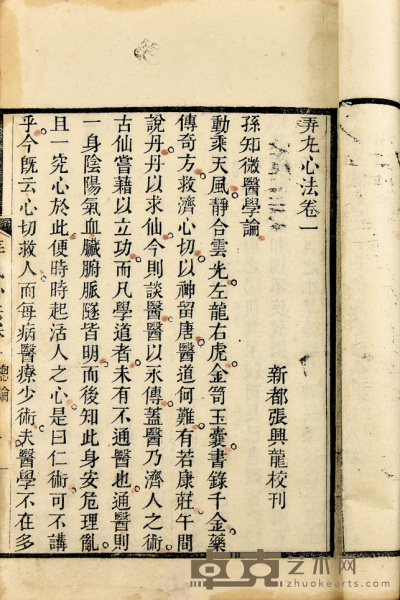 弄丸心法卷一
新都張興龍校刊
孫知微醫學論
動乘天風靜合雲光左龍右虎金笥玉囊書錄千金藥
傳奇方救濟心切以神留唐醫道何難有若康莊午間
說丹丹以求仙今則談醫醫以永傳蓋醫乃濟人之術
古仙嘗藉以立功而凡學道者未有不通醫也通醫則
一身陰陽氣血臟腑脈隧皆明而後知此身安危理亂
且一究心於此便時時起活人之心是曰仁術可不講
乎今既云心切救人而每病醫療少術夫醫學不在多
總論
卓克艺术网
zhuokearts.com